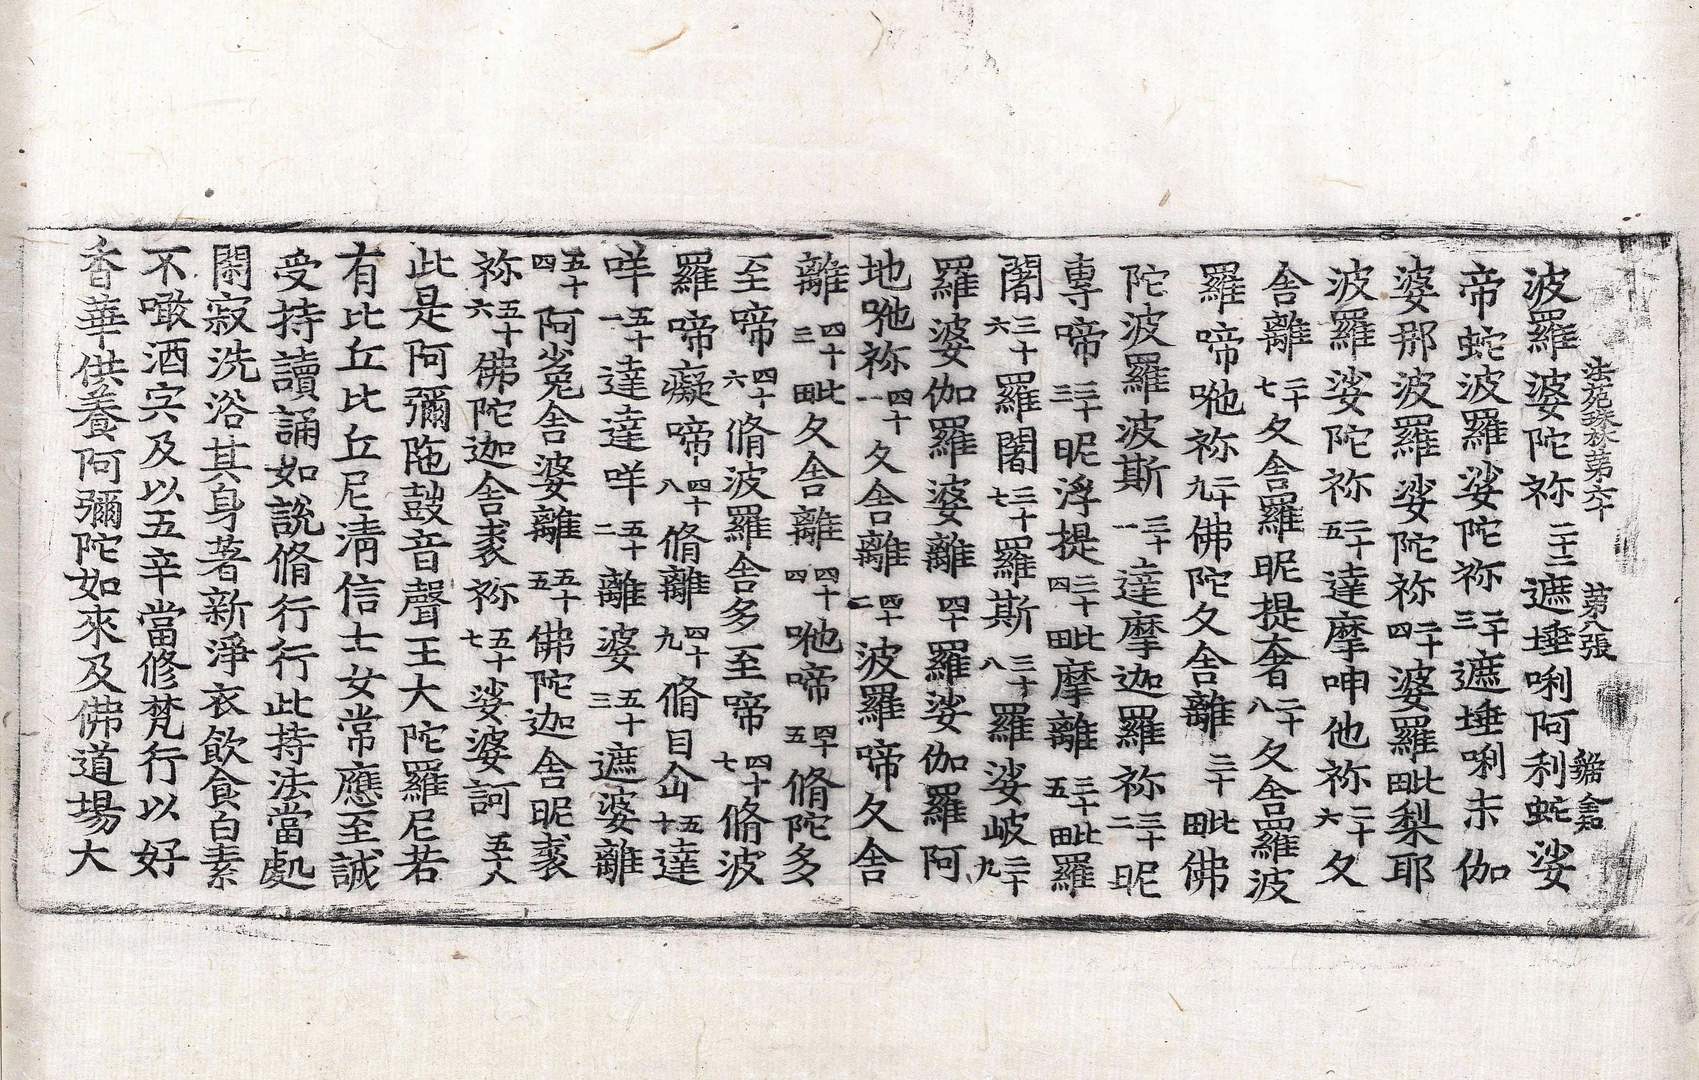 法苑珠林第六十　第八張　雞　含知
波羅婆陀祢二十二遮埵唎阿利虵娑
帝虵波羅娑陀祢二十三遮埵唎未伽
婆那波羅娑陀祢二十四婆羅毗梨耶
波羅娑陀祢二十五達摩呻他祢二十六夂
舍離二十七夂舍羅昵提奢二十八夂舍羅波
羅啼吔祢二十九佛陀夂舍離三十毗佛
陀波羅波斯三十一達摩迦羅祢三十二昵
專啼三十三昵浮提三十四毗摩離三十五毗羅
闍三十六羅闍三十七羅斯三十八羅娑岐三十九
羅婆伽羅婆離四十羅娑伽羅阿
地吔祢四十一夂舍離四十二波羅啼夂舍
離四十三毗夂舍離四十四吔啼四十五脩陀多
至啼四十六脩波羅舍多至啼四十七脩波
羅啼癡啼四十八脩離四十九脩目𠆧五十達
咩五十一達達咩五十二離婆五十三遮婆離
五十四阿㝹舍婆離五十五佛陀迦舍昵裘
祢五十六佛陀迦舍裘祢五十七娑婆訶五十八
此是阿彌陁鼓音聲王大陀羅尼若
有比丘比丘尼清信士女常應至誠
受持讀誦如說脩行行此持法當處
閑寂洗浴其身著新淨衣飲食白素
不噉酒宍及以五辛當修梵行以好
香華供養阿彌陀如來及佛道場大